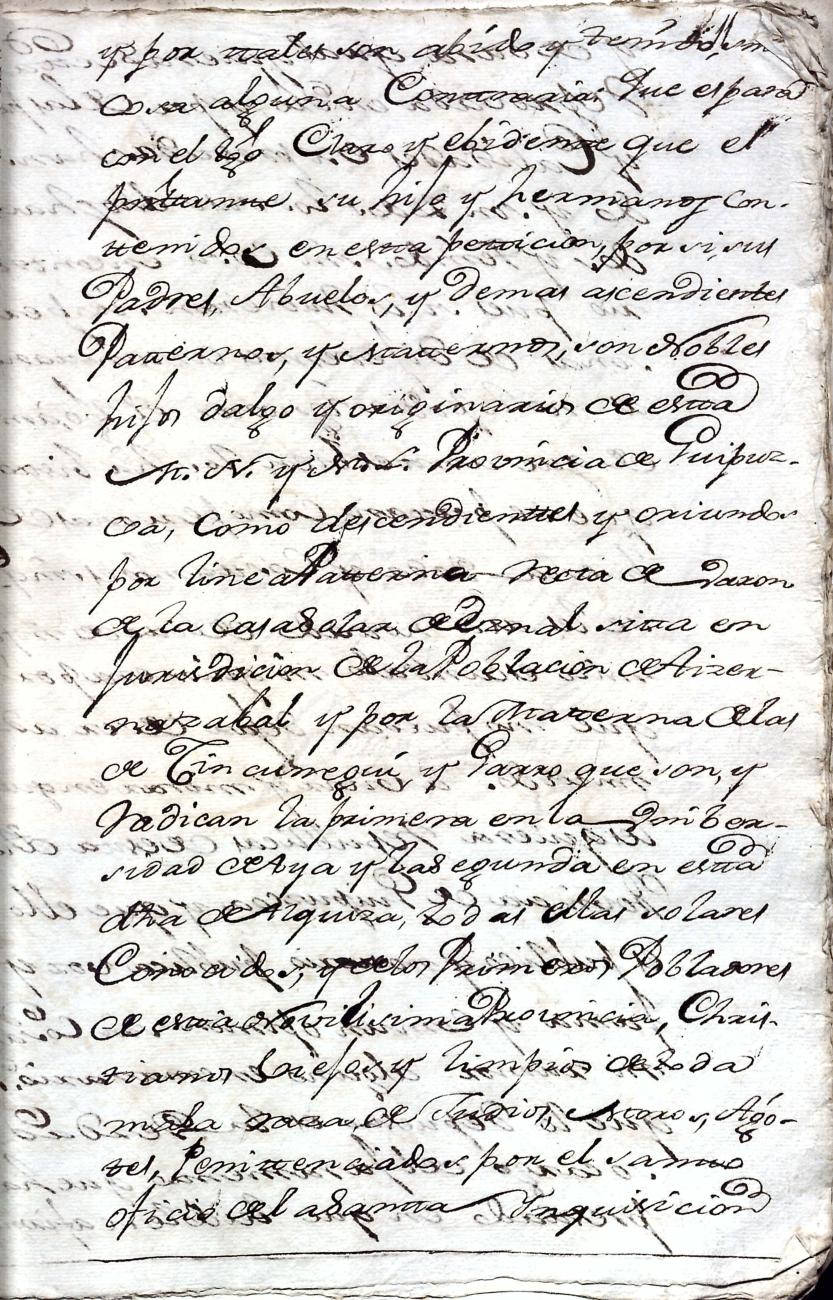 y por tales son abido y tenido, sin
cosa alguna Contraria: Que es para
con el Claro y ebidente que el
su hijo y hermanos con-
tenidos en esta peticion, por si, sus
Padres, Abuelos, y demas ascendientes
Paternos, y Maternos, son Nobles
hijos dalgo y originarios de esta
M. N. y M. L. Provincia de Guipuz-
coa, como descendientes y oriundos
por linea Paterna recta de Varon
de la Casa Solar de sita en
Jurisdicion de la Poblacion de Aizer-
nazabal y por la Materna de las
de Tincunegui y Garro que son, y
Radican la primera en la Uniber-
sidad de Aya y la Segunda en esta
dha de Alquiza, todas ellas solares
Conocidos, y de los Primeros Pobladores
de esta Novilisima Provincia, Chris-
tianos biejos y limpios de toda
mala raza de Judios, Moros, Ago-
tes, Penitenciados por el santo
oficio de la Santa Ynquisicion